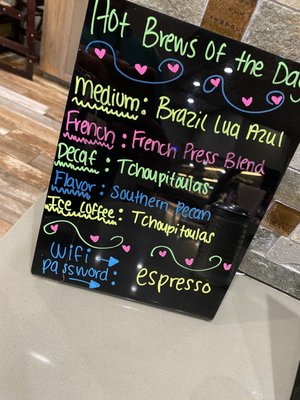 Hot Brews of the Day
Medium: Brazil Lua Azul
French: French Press Blend
Decaf: Tchoupitoulas
Flavor: Southern pecan
Ice coffee: Tchoupitoulas
Wifi →
password: → espresso